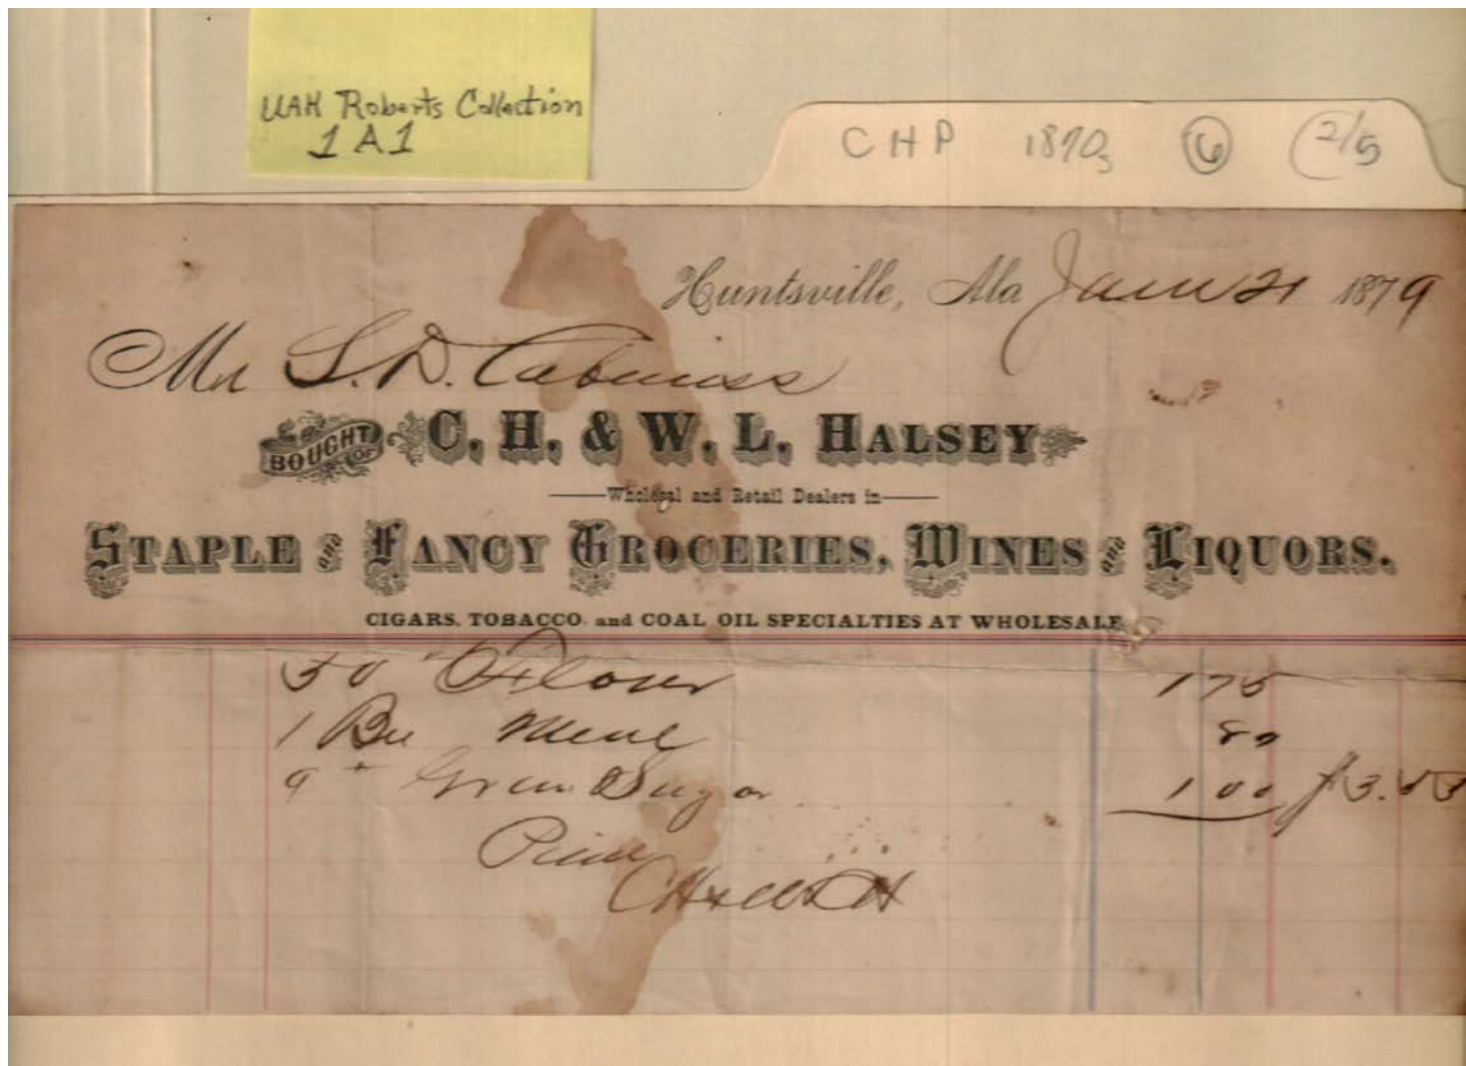 UAH Roberts Collection
1A1
CHP 1870s 6 2/5
Huntsville, Ala Jany 21 1879
Mr S. D. Cabaniss
BOUGHT OF C. H. & W. L. HALSEY
Wholesal and Retail Dealers in
STAPLE AND FANCY GROCERIES, WINES AND LIQUORS.
CIGARS, TOBACCO and COAL OIL SPECIALTIES AT WHOLESALE
50 " Flour 175
1 Bu Meal 80
9 " Gran Sugar 100 $3.55
C H & W L H